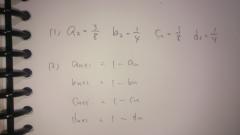 (1) a₂ = 3/8 b₂ = 1/4 c₂ = 1/8 d₂ = 1/4
(2) aₙ₊₁ = 1 - aₙ
bₙ₊₁ = 1 - bₙ
cₙ₊₁ = 1 - cₙ
dₙ₊₁ = 1 - dₙ